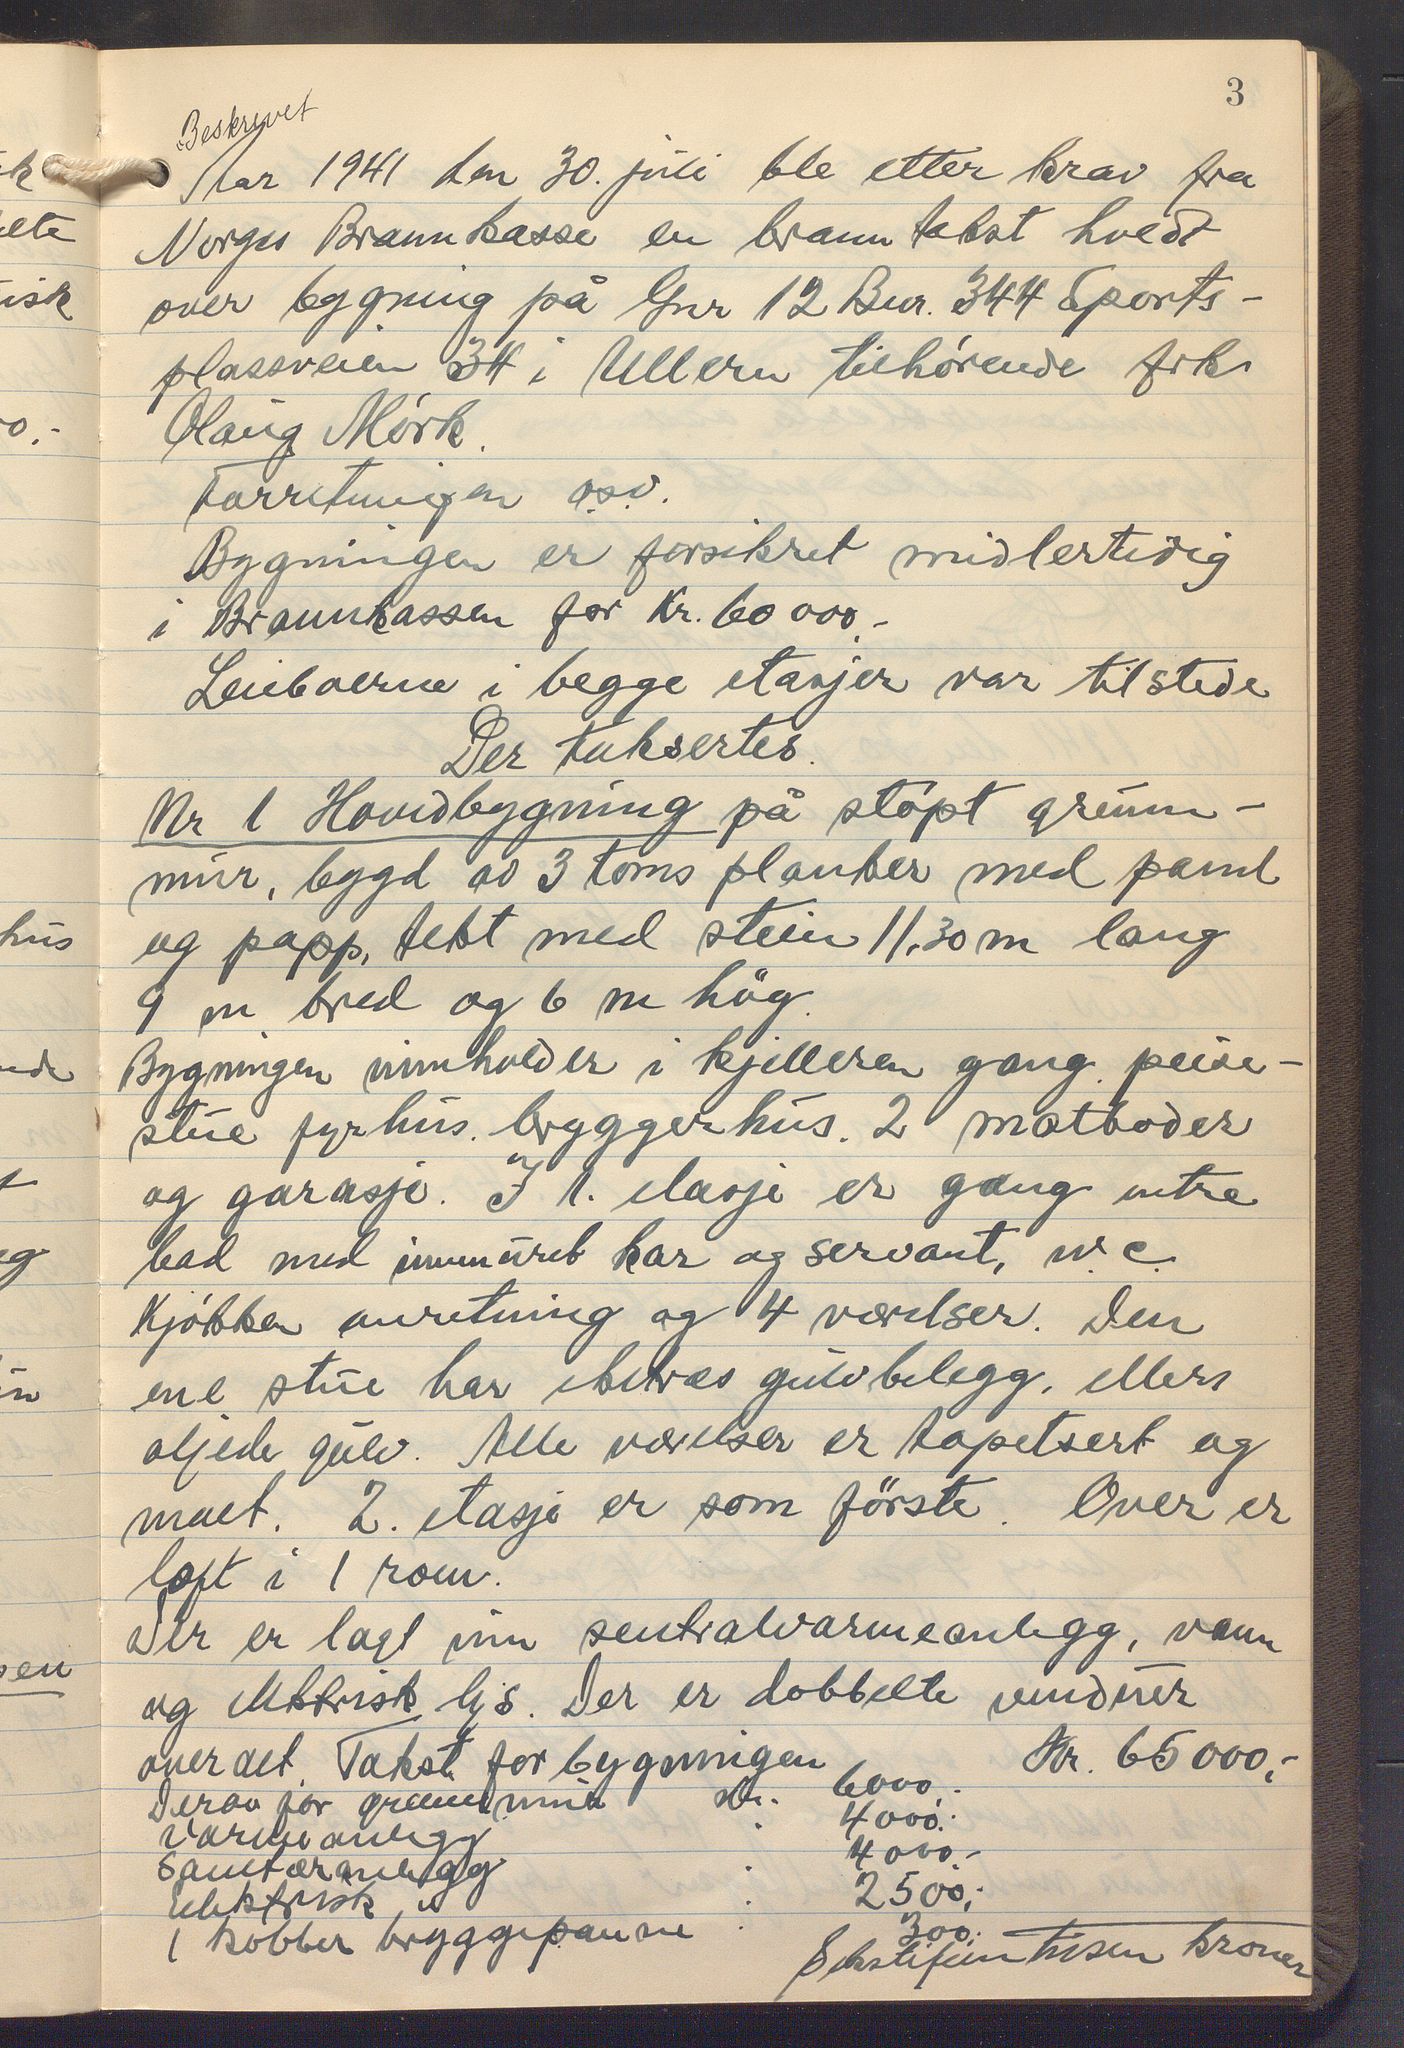 3
Beskrevet
År 1941 den 30. juli ble etter krav fra
Norges Brannkasse en branntakst hvedt
over bygning på Gnr 12 Bnr. 344 Sports-
plassveien 34 i Ullern tilhørende frk.
Olaug Mørk.
Forretningen o.s.v.
Bygningen er forsikret midlertidig
i Brannkassen for Kr. 60 000.-
Leieboerne i begge etasjer var tilstede
Der taksertes.
Nr 1 Hovidbygning på støpt grunn-
mur, bygd av 3 toms planker med panel
og papp, tekt med stein 11,30 m lang
9 m bred og 6 m hög.
Bygningen innholder i kjelleren gang. peise-
stue fyrhus. bryggerhus. 2 matboder
og garasje. I 1. etasje er gang entre
bad med innmuret kar og servant, w.c.
Kjøkken anretning og 4 værelser. Den
ene stue har gulvbelegg, ellers
oljede gulv. Alle værelser er tapetsert og
malt. 2. etasje er som förste. Over er
loft i 1 rom.
Der er lagt inn sentralvarmeanlegg, vann
og elektrisk lys. Der er dobbelte vinduer
over alt. Takst for bygningen Kr. 65 000,-
Derav for grunnmur Kr. 6000.-
Varmeanlegg " 4000.-
Sanitæranlegg " 4000.-
Elektrisk " 2500,-
1 kobber bryggepanne " 300.-
Sekstifem tusen kroner